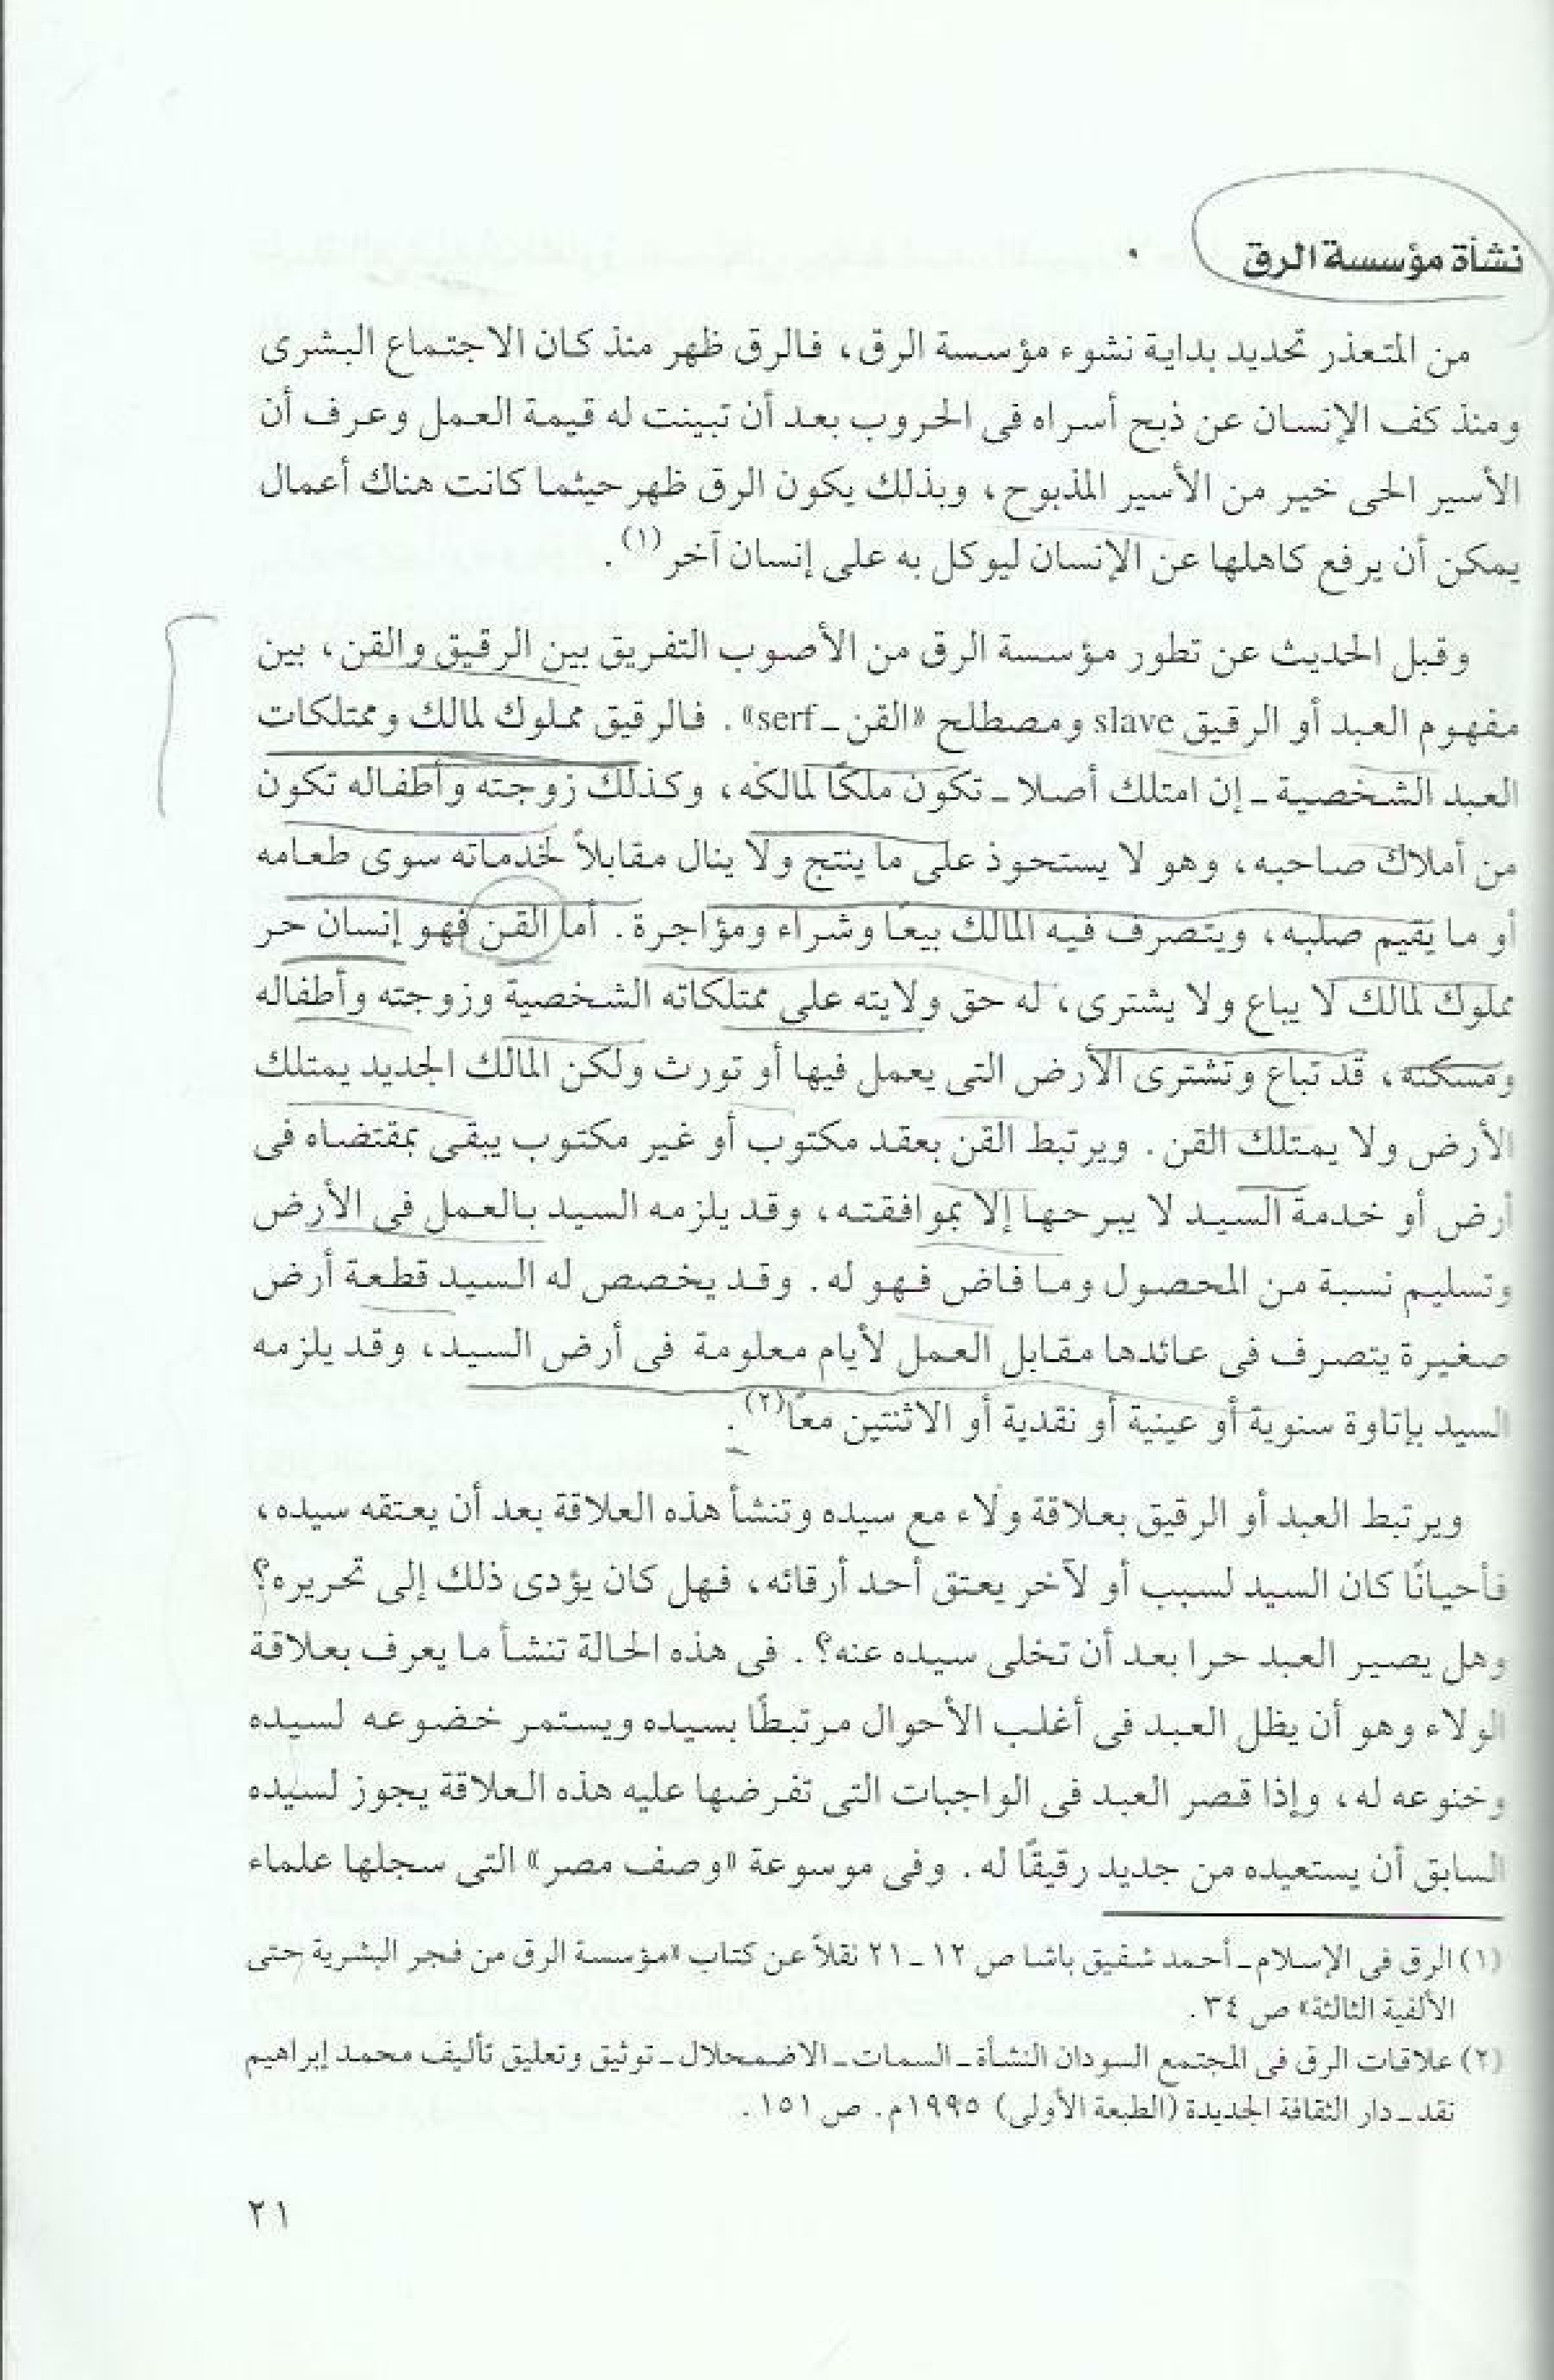 نشأة مؤسسة الرق
من المتعذر تحديد بداية نشوء مؤسسة الرق، فالرق ظهر منذ كان الاجتماع البشرى
ومنذ كف الإنسان عن ذبح أسراه فى الحروب بعد أن تبينت له قيمة العمل وعرف أن
الأسير الحى خير من الأسير المذبوح، وبذلك يكون الرق ظهر حيثما كانت هناك أعمال
يمكن أن يرفع كاهلها عن الإنسان ليوكل به على إنسان آخر(١).
وقبل الحديث عن تطور مؤسسة الرق من الأصوب التفريق بين الرقيق والقن، بين
مفهوم العبد أو الرقيق slave ومصطلح «القن ـ serf». فالرقيق مملوك لمالك وممتلكات
العبد الشخصية ـ إن امتلك أصلا ـ تكون ملكًا لمالكه، وكذلك زوجته وأطفاله تكون
من أملاك صاحبه، وهو لا يستحوذ على ما ينتج ولا ينال مقابلاً لخدماته سوى طعامه
أو ما يقيم صلبه، ويتصرف فيه المالك بيعًا وشراء ومؤاجرة. أما القن فهو إنسان حر
مملوك لمالك لا يباع ولا يشترى، له حق ولايته على ممتلكاته الشخصية وزوجته وأطفاله
ومسكنه، قد تباع وتشترى الأرض التى يعمل فيها أو تورث ولكن المالك الجديد يمتلك
الأرض ولا يمتلك القن. ويرتبط القن بعقد مكتوب أو غير مكتوب يبقى بمقتضاه فى
أرض أو خدمة السيد لا يبرحها إلا بموافقته، وقد يلزمه السيد بالعمل فى الأرض
وتسليم نسبة من المحصول وما فاض فهو له. وقد يخصص له السيد قطعة أرض
صغيرة يتصرف فى عائدها مقابل العمل لأيام معلومة فى أرض السيد، وقد يلزمه
السيد بإتاوة سنوية أو عينية أو نقدية أو الاثنتين معًا(٢).
ويرتبط العبد أو الرقيق بعلاقة ولاء مع سيده وتنشأ هذه العلاقة بعد أن يعتقه سيده،
فأحيانًا كان السيد لسبب أو لآخر يعتق أحد أرقائه، فهل كان يؤدى ذلك إلى تحريره؟
وهل يصير العبد حرا بعد أن تخلى سيده عنه؟. فى هذه الحالة تنشأ ما يعرف بعلاقة
الولاء وهو أن يظل العبد فى أغلب الأحوال مرتبطًا بسيده ويستمر خضوعه لسيده
وخنوعه له، وإذا قصر العبد فى الواجبات التى تفرضها عليه هذه العلاقة يجوز لسيده
السابق أن يستعيده من جديد رقيقًا له. وفى موسوعة «وصف مصر» التى سجلها علماء
(١) الرق فى الإسلام ـ أحمد شفيق باشا ص ١٢ ـ ٢١ نقلاً عن كتاب «مؤسسة الرق من فجر البشرية حتى
الألفية الثالثة» ص ٣٤.
(٢) علاقات الرق فى المجتمع السودان النشأة ـ السمات ـ الاضمحلال ـ توثيق وتعليق تأليف محمد إبراهيم
نقد ـ دار الثقافة الجديدة (الطبعة الأولى) ١٩٩٥م. ص ١٥١.
٢١